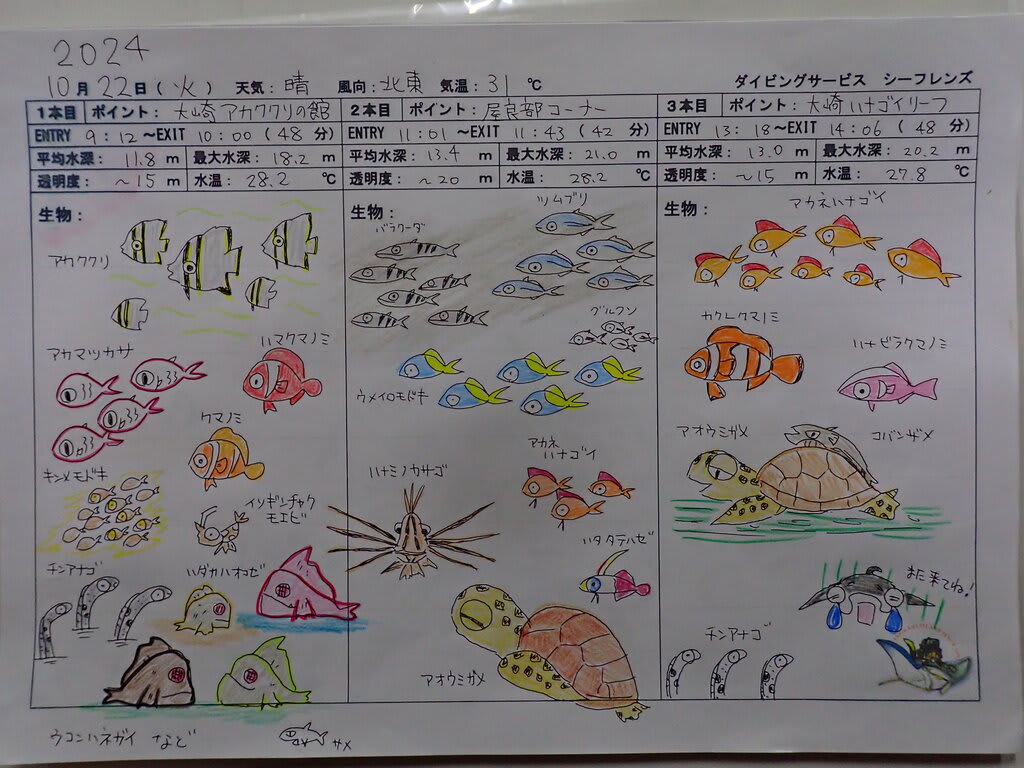 2024
10月22日(火) 天気:晴 風向:北東 気温:31℃ ダイビングサービス シーフレンズ
1本目 ポイント:大崎アカククリの館
ENTRY 9:12～EXIT 10:00(48分)
平均水深:11.8m 最大水深:18.2m
透明度:~15m 水温:28.2℃
生物:
アカククリ
アカマツカサ
ハマクマノミ
クマノミ
キンメモドキ
イソギンチャク
モエビ
チンアナゴ
ハダカハオコゼ
ウコンハネガイ など
サメ
2本目 ポイント:屋良部コーナー
ENTRY 11:01～EXIT 11:43(42分)
平均水深:13.4m 最大水深:21.0m
透明度:~20m 水温:28.2℃
生物:
ツムブリ
バラクーダ
グルクン
ウメイロモドキ
アカネ
ハナゴイ
ハナミノカサゴ
ハタタテハゼ
アオウミガメ
3本目 ポイント:大崎ハナゴイリーフ
ENTRY 13:18～EXIT 14:06(48分)
平均水深:13.0m 最大水深:20.2m
透明度:~15m 水温:27.8℃
生物:
アカネハナゴイ
カクレクマノミ
ハナビラクマノミ
アオウミガメ
コバンザメ
また来てね!
チンアナゴ